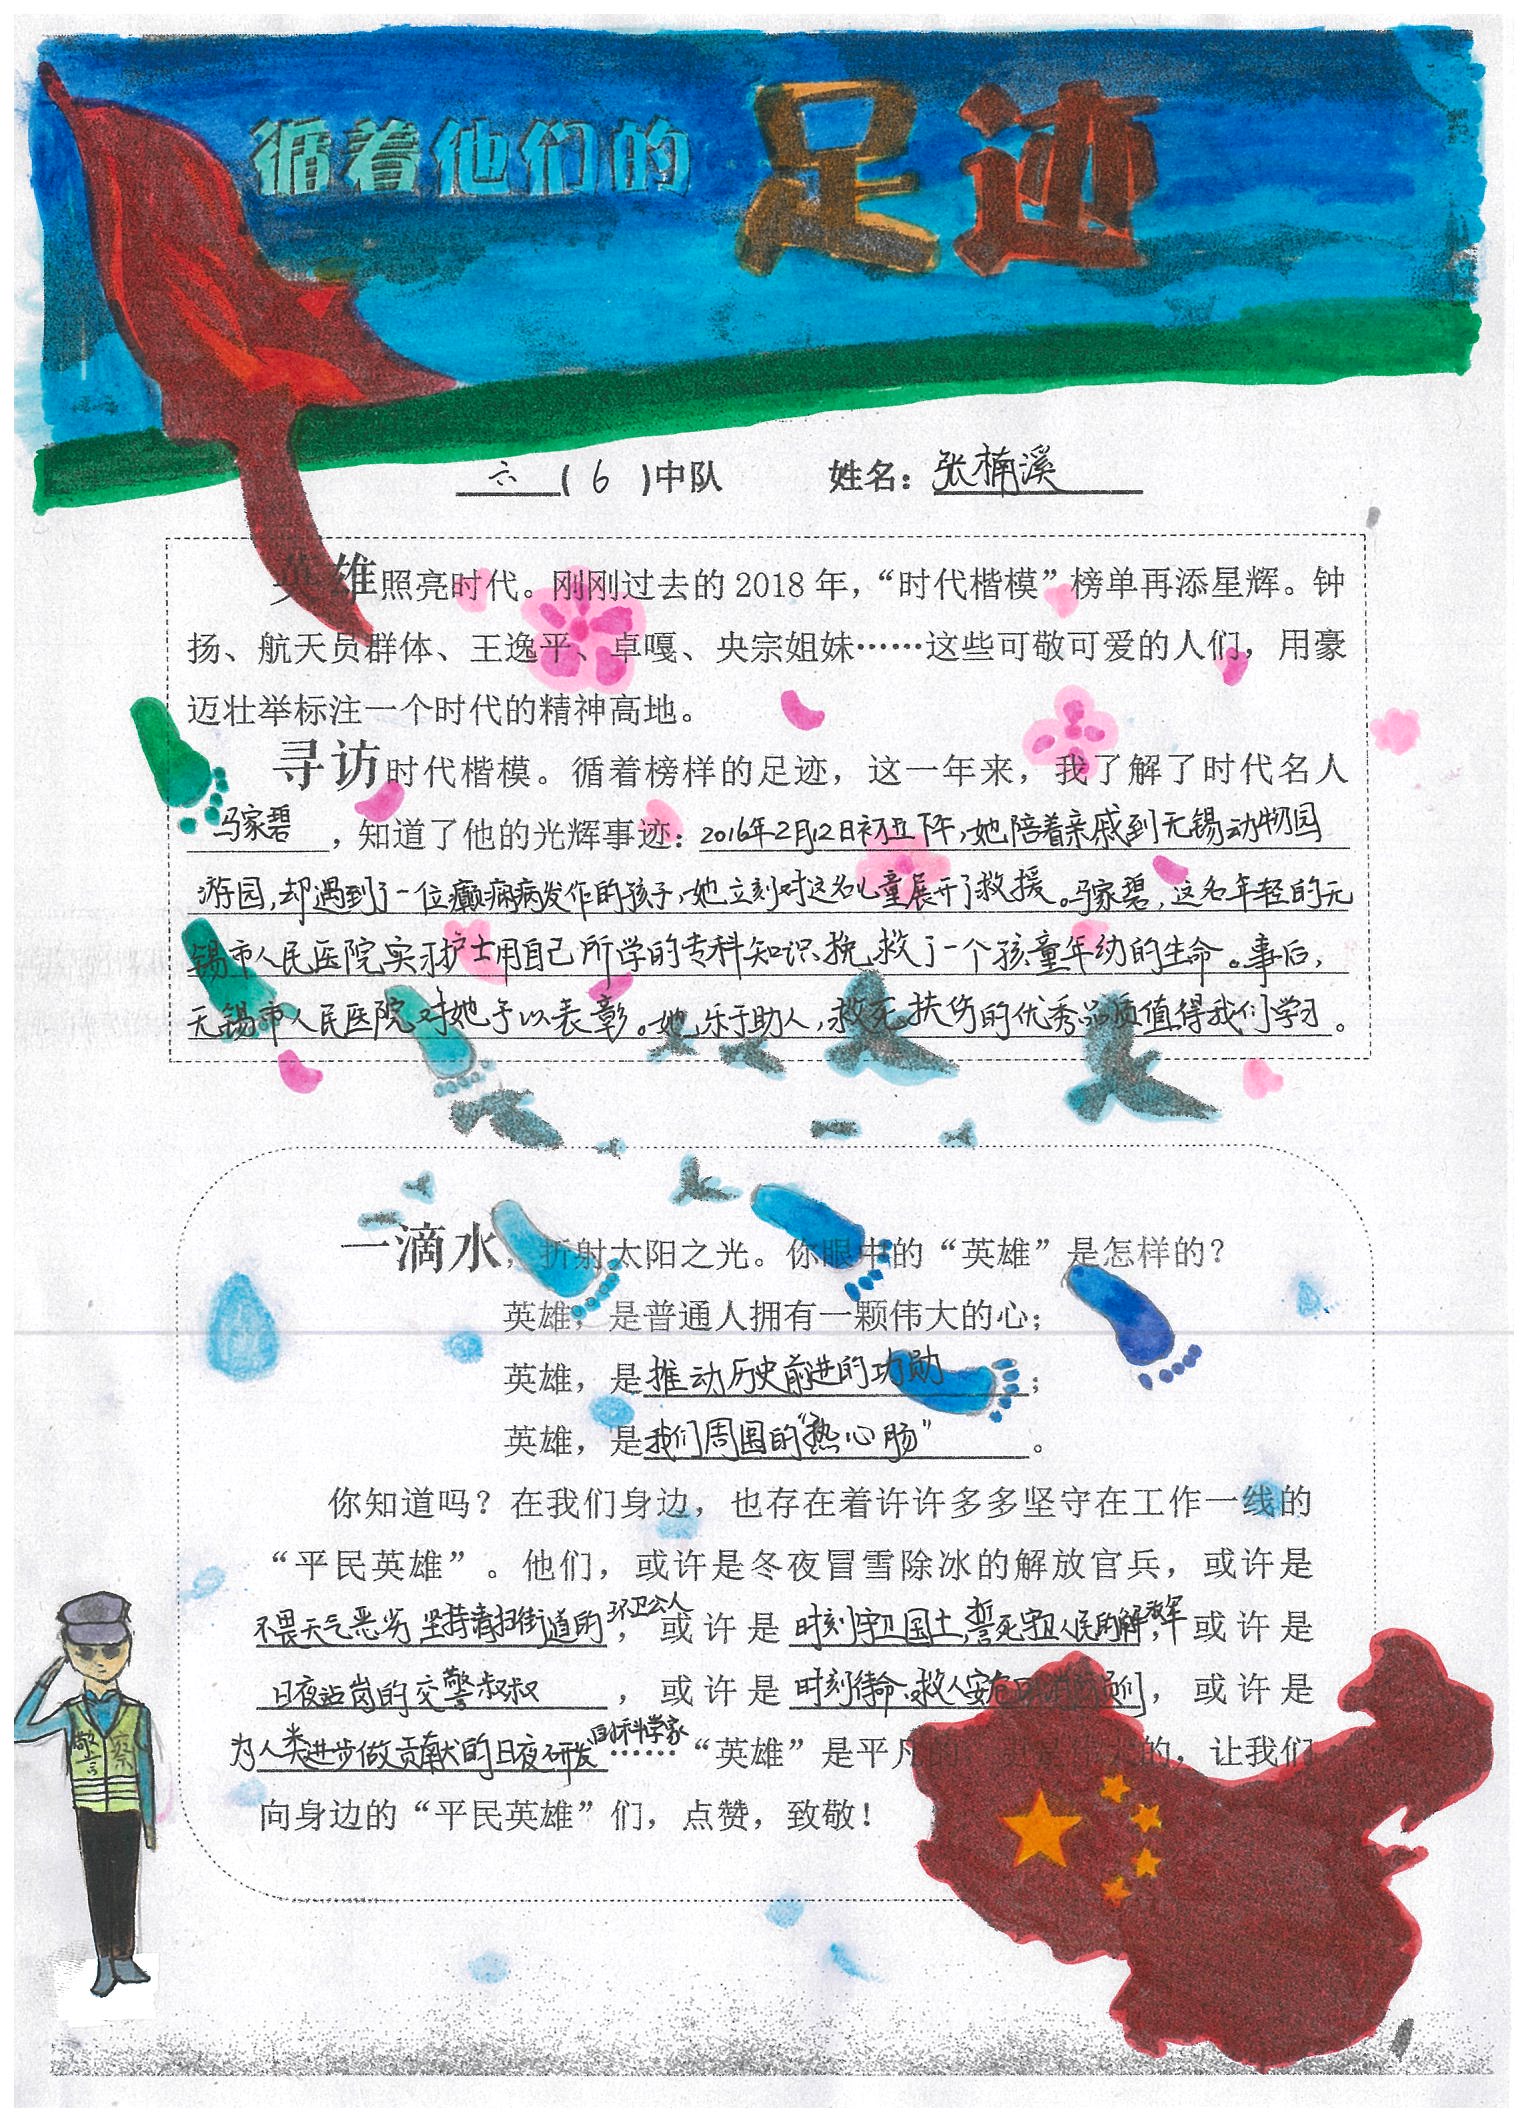 循着他们的足迹
六(6)中队 姓名：张楠溪
英雄照亮时代。刚刚过去的2018年，“时代楷模”榜单再添星辉。钟
扬、航天员群体、王逸平、卓嘎、央宗姐妹……这些可敬可爱的人们，用豪
迈壮举标注一个时代的精神高地。
寻访时代楷模。循着榜样的足迹，这一年来，我了解了时代名人
马家碧，知道了他的光辉事迹：2016年2月12日初五下午，她陪着亲戚到无锡动物园
游园，却遇到了一位癫痫病发作的孩子，她立刻对这名儿童展开了救援。马家碧，这名年轻的无
锡市人民医院实习护士用自己所学的专科知识挽救了一个孩童年幼的生命。事后，
无锡市人民医院对她予以表彰。她乐于助人，救死扶伤的优秀品质值得我们学习。
一滴水，折射太阳之光。你眼中的“英雄”是怎样的？
英雄，是普通人拥有一颗伟大的心；
英雄，是推动历史前进的功勋；
英雄，是我们周围的“热心肠”。
你知道吗？在我们身边，也存在着许许多多坚守在工作一线的
“平民英雄”。他们，或许是冬夜冒雪除冰的解放官兵，或许是
不畏天气恶劣坚持清扫街道的环卫公人，或许是时刻守卫国土，誓死守卫人民的解放军，或许是
日夜站岗的交警叔叔，或许是时刻待命、救人安危的消防员们，或许是
为人类进步做贡献的日夜研发的科学家……“英雄”是平凡的，让我们
向身边的“平民英雄”们，点赞，致敬！
警察